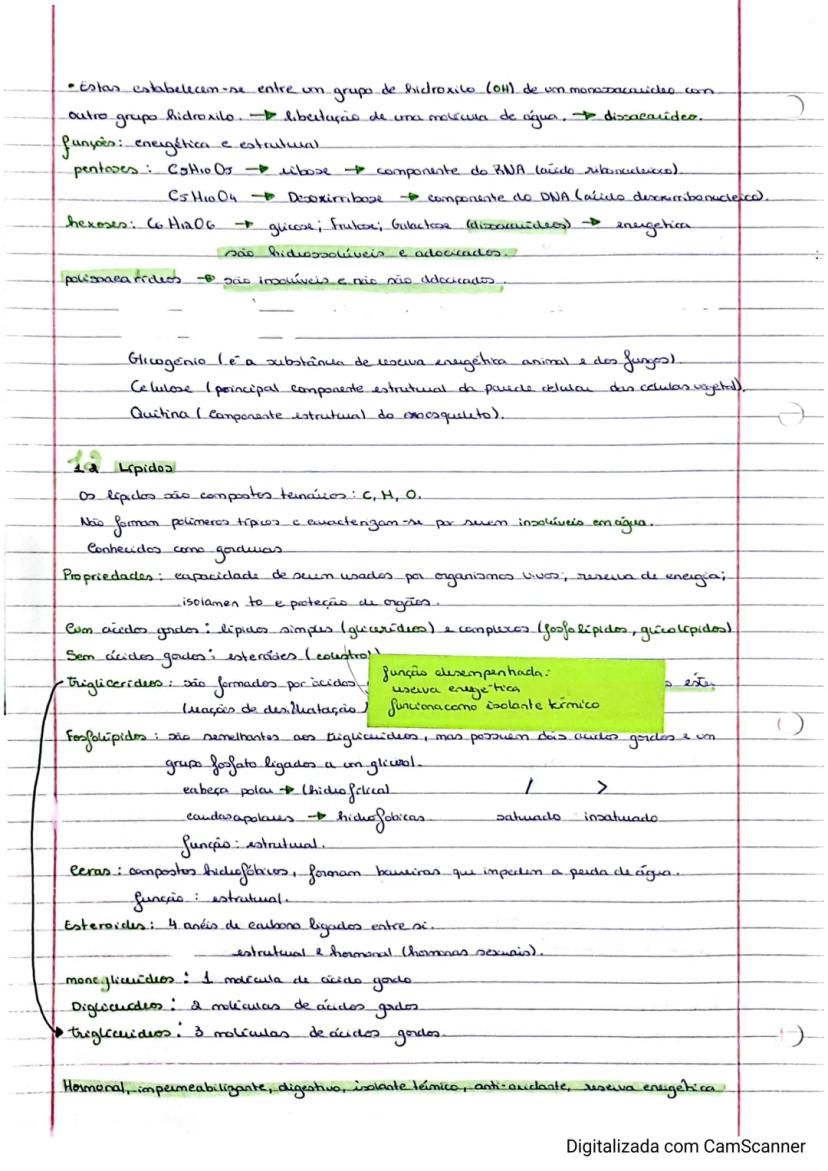 • Estas estabelecem-se entre um grupo de hidroxilo (OH) de um monossacarídeo com
outro grupo hidroxilo. → libertação de uma molécula de água. → dissacarídeo.
funções: energética e estrutural
pentoses : C5H10O5 → ribose → componente do RNA (ácido ribonucleico).
C5H10O4 → Desoxirribose → componente do DNA (ácido desoxirribonucleico).
hexoses: C6H12O6 → glicose; frutose; Galactose (dissacarídeos) → energética
são hidrossolúveis e adocicados.
polissacarídeos → são insolúveis e não são adocicados.
Glicogénio (é a substância de reserva energética animal e dos fungos).
Celulose (principal componente estrutural da parede celular das células vegetal).
Quitina (componente estrutural do exoesqueleto).
1.2 Lípidos
Os lípidos são compostos ternários: C, H, O.
Não formam polímeros típicos e caracterizam-se por serem insolúveis em água.
Conhecidos como gorduras
Propriedades: capacidade de serem usados por organismos vivos; reserva de energia;
isolamento e proteção de orgãos.
Com ácidos gordos: lípidos simples (glicerídeos) e complexos (fosfolípidos, glicolípidos)
Sem ácidos gordos: esteróides (
função desempenhada:
reserva energética
funciona como isolante térmico
Triglicerídeos: são formados por ácidos éster
(reações de desidratação)
Fosfolípidos: são semelhantes aos triglicerídeos, mas possuem dois ácidos gordos e um
grupo fosfato ligados a um glicerol.
cabeça polar → (hidrofílica)
caudas apolares → hidrofóbicas. saturado insaturado
função: estrutural.
Ceras: compostos hidrofóbicos, formam barreiras que impedem a perda de água.
função : estrutural.
Esteroides: 4 anéis de carbono ligados entre si.
estrutural e hormonal (hormonas sexuais).
monoglicerídeos: 1 molécula de ácido gordo
Diglicerídeos: 2 moléculas de ácidos gordos
triglicerídeos: 3 moléculas de ácidos gordos.
Hormonal, impermeabilizante, digestivo, isolante térmico, anti-oxidante, reserva energética
Digitalizada com CamScanner